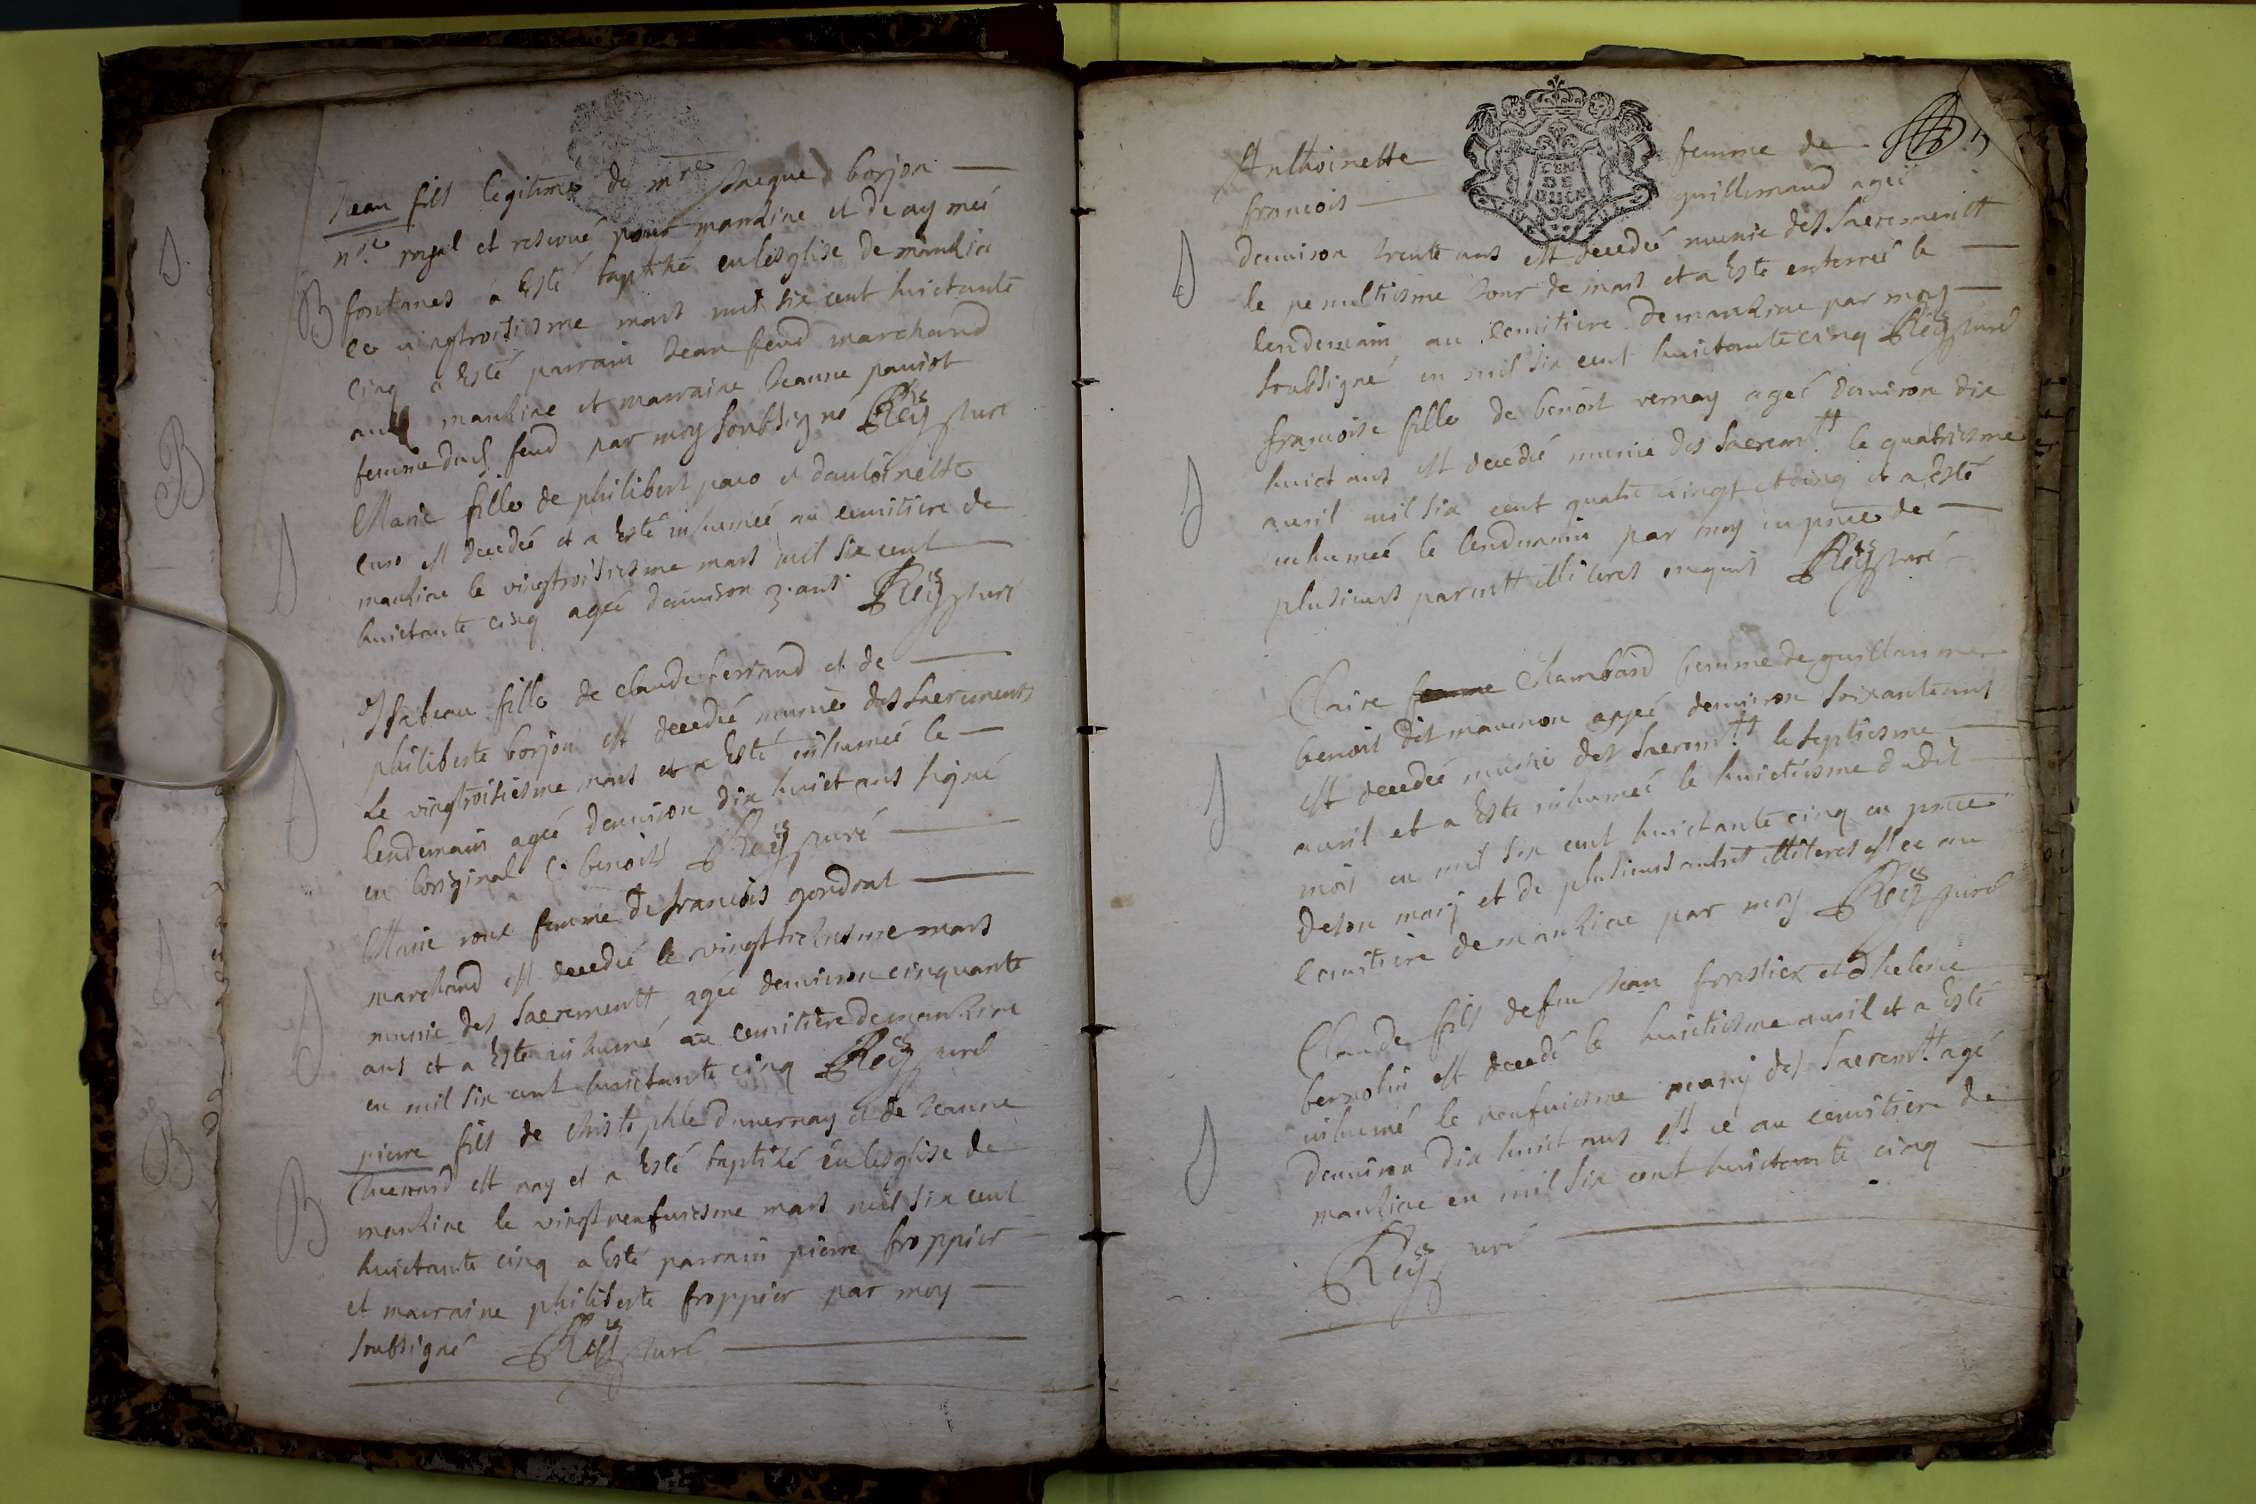 Jean fils legitime de mre Jacque borjon
nre royal et reservé pour manziac et de aymeé
B fontanes a Esté baptizé en lesglise de manziat
ce vingtroisiesme mars mil six cent huictante
cinq a Esté parrain Jean feud marchand
manziac et marraine Jeanne pauiot
femme dud feud par moy soubsigné Reÿ curé
Marie fille de philibert paro et dantoinette
est decedeé et a Esté inhumeé au cemitiere de
manziac le vingtroisiesme mars mil six cent
huictante cinq ageé denuiron 3. ans Reÿ curé
Isabeau fille de claude ferrand et de
philiberte borjon est decedeé munie des sacrements
Le vingtroisiesme mars et a Esté inhumeé le
lendemain ageé denuiron dix huict ans signé
en loriginal C. benoist Reÿ curé
Marie roux femme de francois gondrat
marchand est decedeé le vingt mars
munie des sacrementt ageé denuiron cinquante
ans et a Este inhumé au cemitiere de manziac
en mil six cent huictante cinq Reÿ curé
pierre fils de christophle duuernay et de Jeanne
Chaeuard est nay et a Esté baptizé en lesglise de
B manziac le vingt neufuiesme mars mil six cent
huictante cinq a Esté parrain pierre froppier
et marraine philiberte froppier par moy
soubsigné Reÿ curé
Anthoinette femme de
francois guillemaud ageé
denuiron trente ans est decedeé munie des sacrementt
le penultiesme Jour de mars et a Este enterreé le
lendemain au cemitiere de manziac par moy
soubsigné en mil six cent huictante cinq Reÿ curé
francoise fille de benoit vernay ageé denuiron dix
huict ans est decedeé munie des sacremtt le quatriesme
auril mil six cent quatre vingt et cinq et a Esté
inhumeé le lendemain par moy en pnce de
plusieurs parentt illiteres enquis Reÿ curé
Claire femme Chambard femme de guillaume
benoit dit maunon ageé denuiron soixante ans
est decedeé munie des sacremtt le septiesme
auril et a Este inhumeé le huictiesme dudit
mois en mil six cent huictante cinq en pnce
de son mary et de plusieurs autres illiteres est ce au
cemitiere de manziac par moy Reÿ curé
Claude fils de feu Jean forestier et dhelene
bernolin est decedé le huictiesme auril et a Esté
inhumé le neufuiesme muny des sacremtt agé
denuiron dix huict ans est ce au cemitiere de
manziac en mil six cent huictante cinq
Reÿ curé